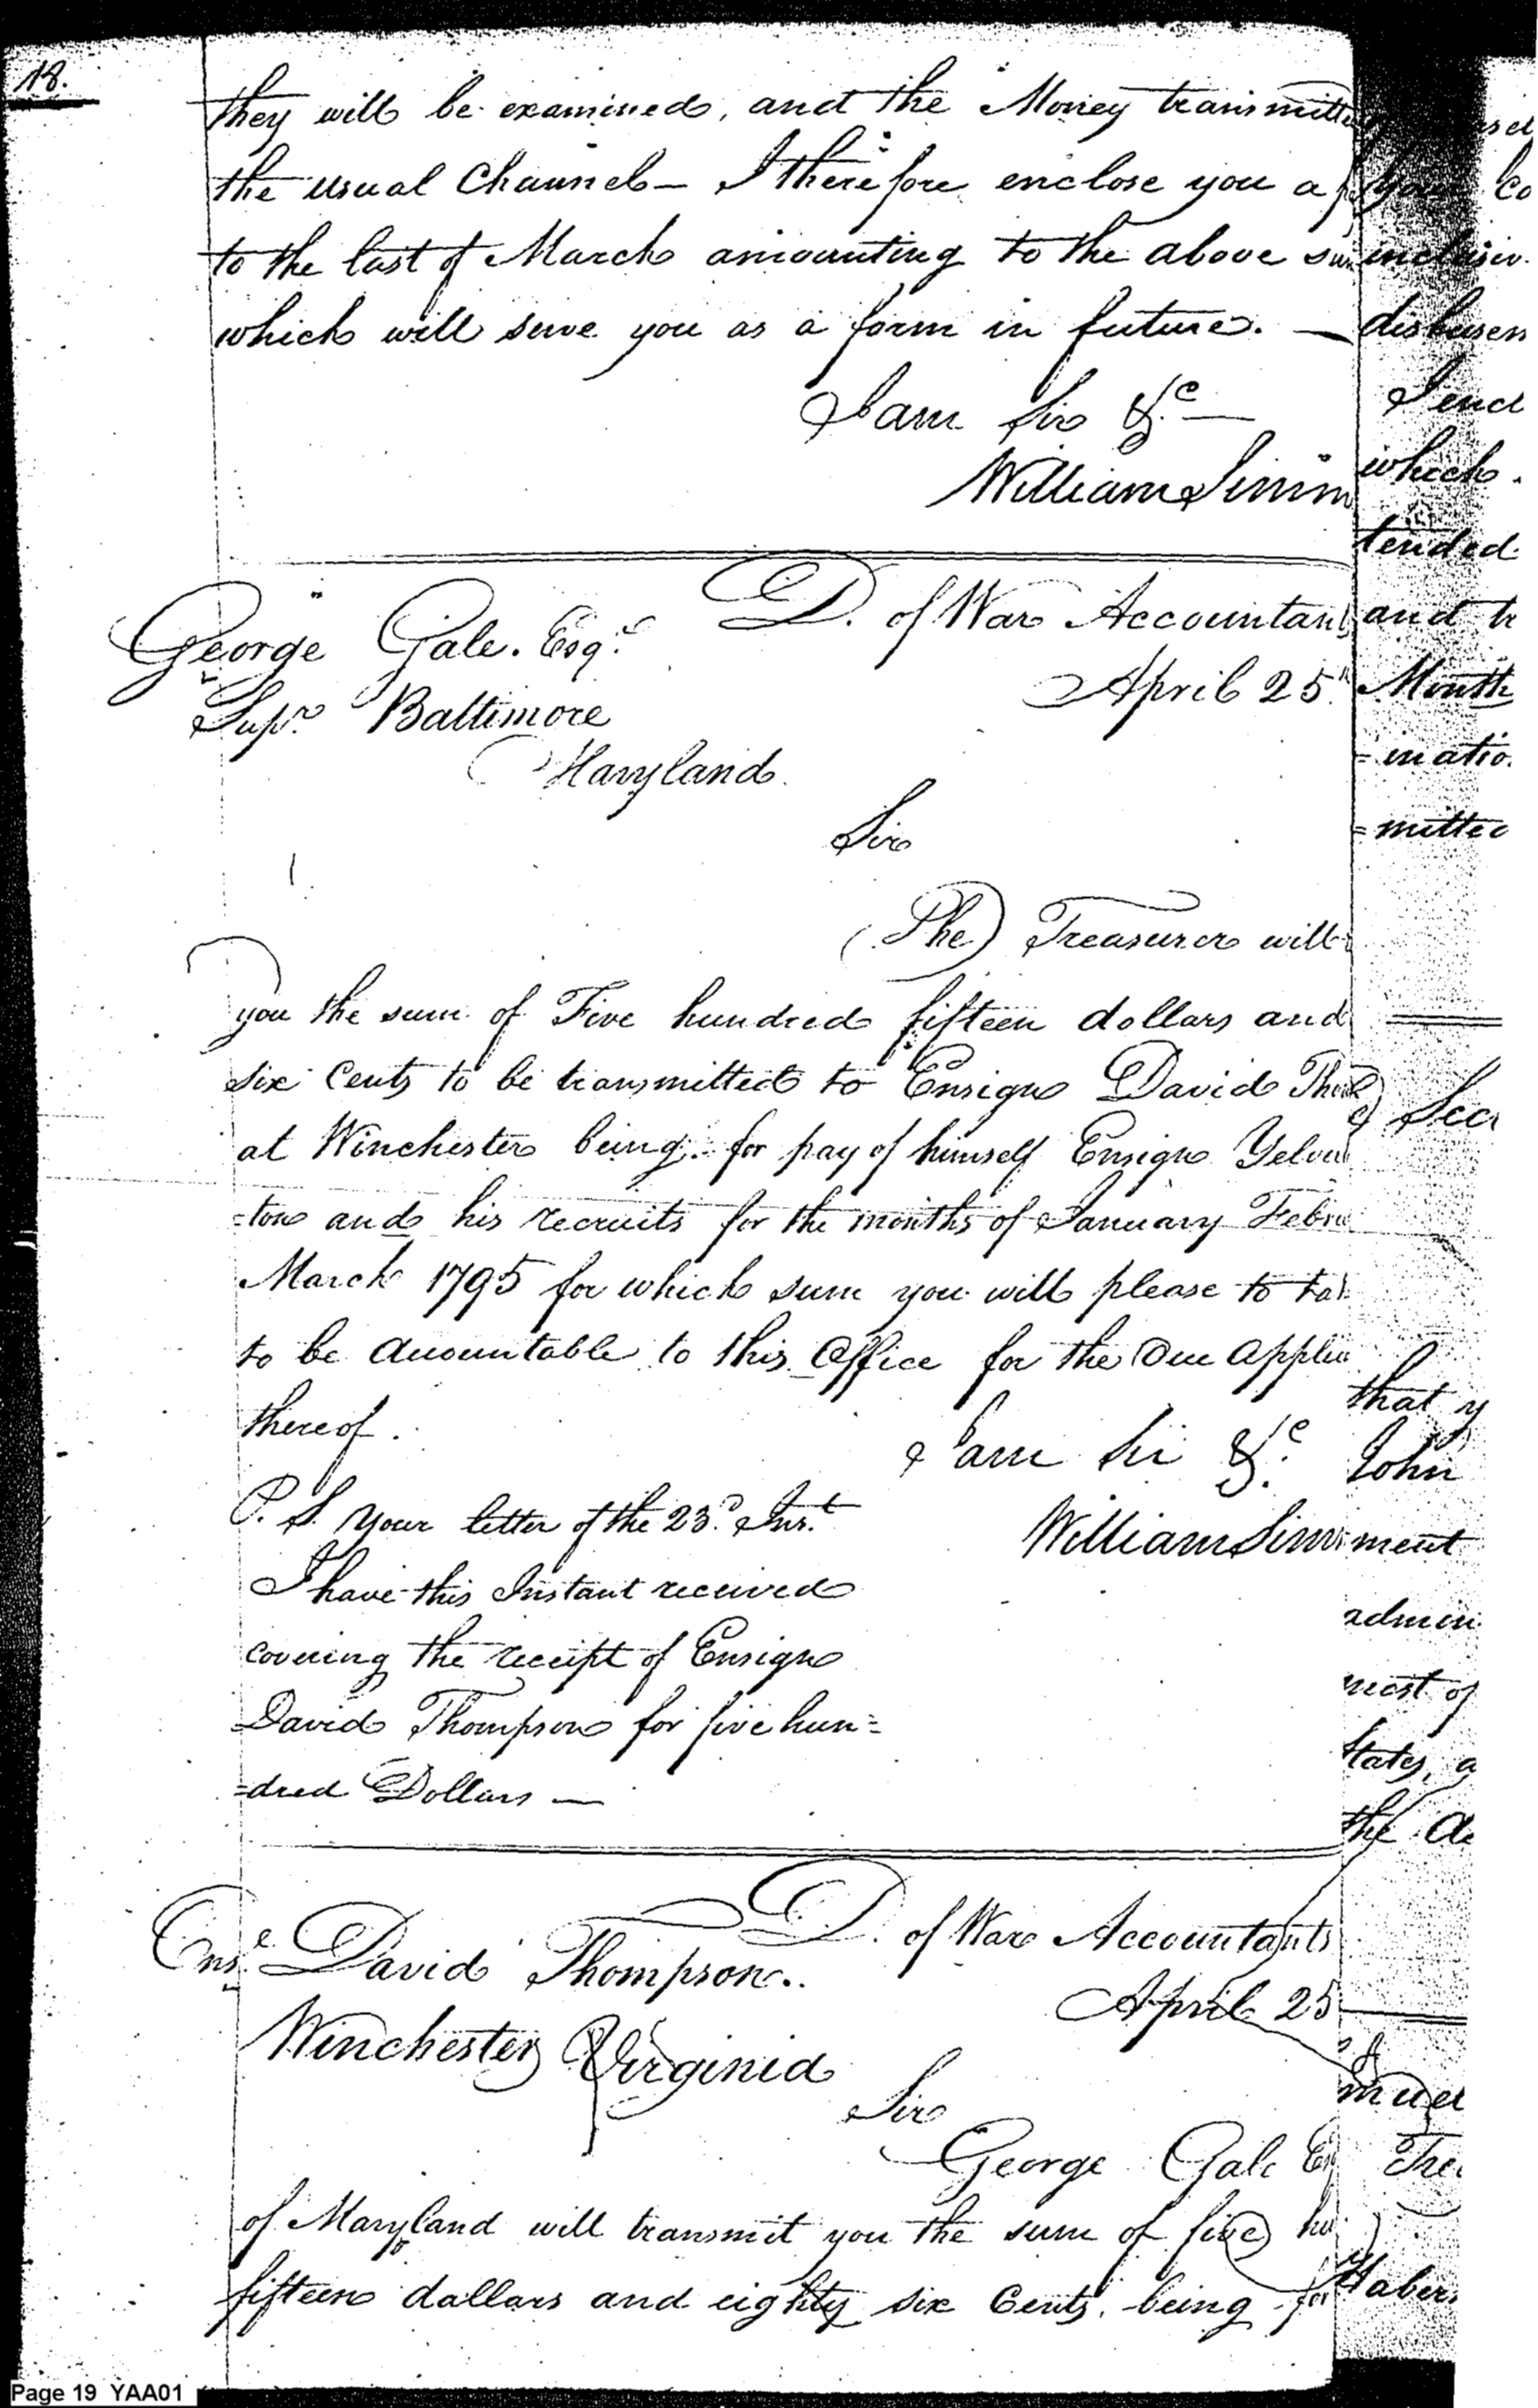 18.
they will be examined, and the Money transmitte
the usual Channel — I therefore enclose you a
to the last of March amounting to the above sum
which will serve you as a form in future. —
I am Sir &c —
William Simm
George Gale. Esqr
D. of War Accountant
Supr. Baltimore
April 25th
Maryland.
Sir
The Treasurer will
you the sum of Five hundred fifteen dollars and
six Cents to be transmitted to Ensign David Tho
at Winchester being for pay of himself Ensign Yelver
=ton and his recruits for the months of January Febru
March 1795 for which sum you will please to ta
to be accountable to this Office for the Due Applic
thereof.
I am Sir &c.
P. S. Your letter of the 23d. Inst.
William Sim
I have this Instant received
covering the receipt of Ensign
David Thompson for five hun=
=dred Dollars —
Ense. David Thompson..
D. of War Accountants
April 25
Winchester Virginia
Sir
George Gale Es
of Maryland will transmit you the sum of five hu
fifteen dollars and eighty six Cents. being for
co
inclusiv.
disbursn
I encl
which.
tended
and tr
Month
=inatio.
=mitted
Secr
that y
John
ment
admin
most of
States, a
the Ac
Trea
Page 19 YAA01